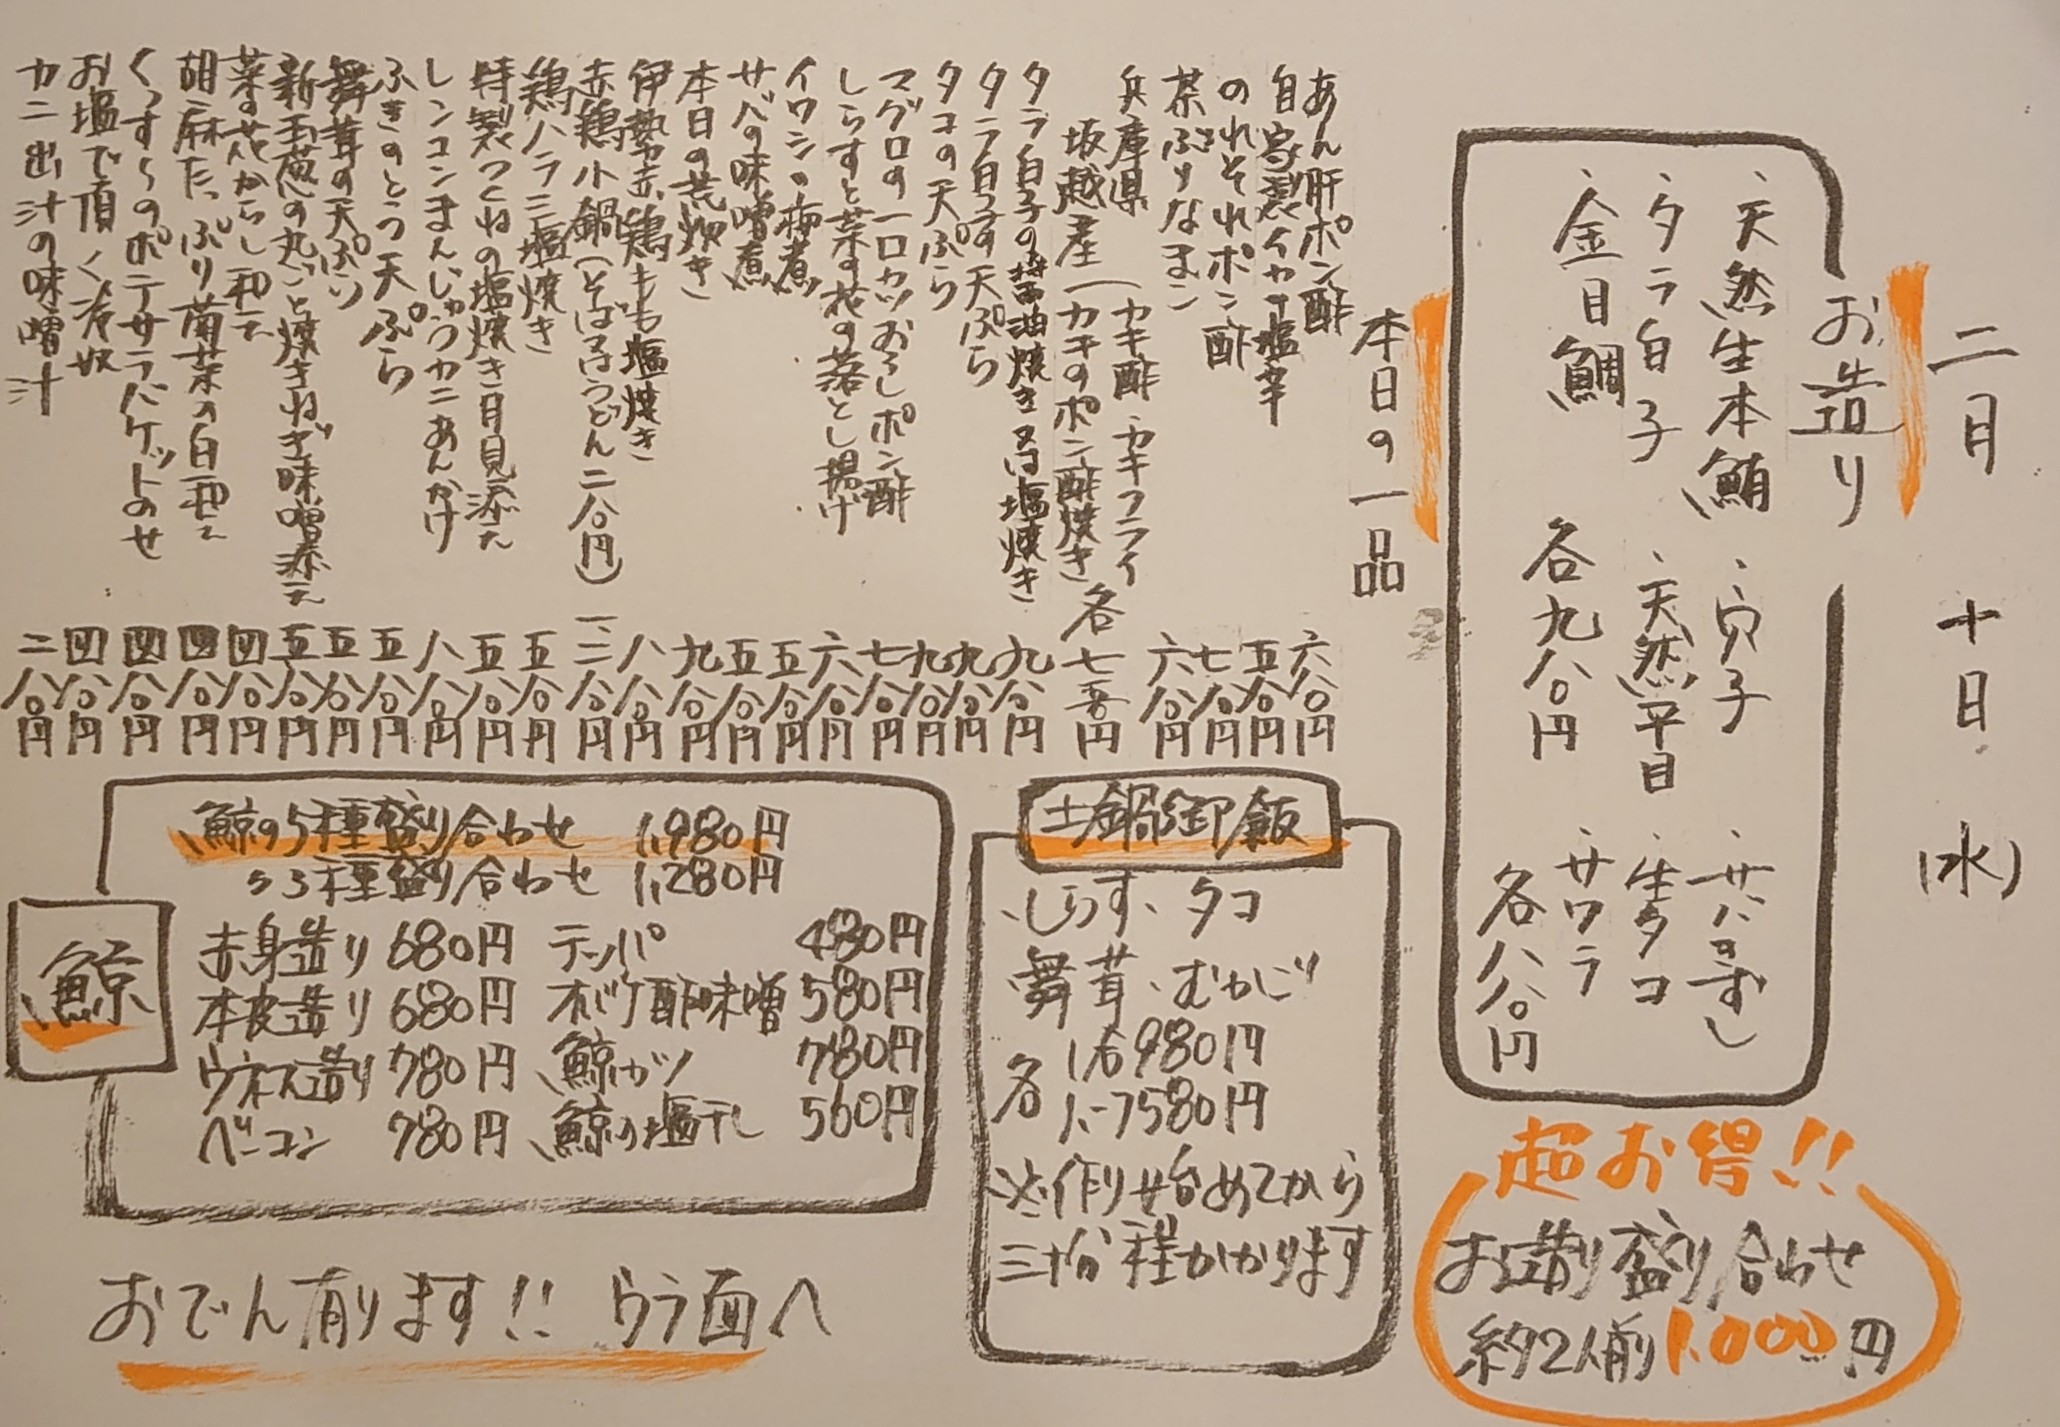 二月 十日 (水)
お造り
・天然生本鮪 ・穴子 ・サバきずし
・タラ白子 ・天然平目 ・生タコ
・金目鯛 各九八〇円 ・サワラ 各八八〇円
超お得!!
お造り盛り合わせ
約2人前1,000円
本日の一品
あん肝ポン酢 六八〇円
自家製イカの塩辛 五八〇円
のれそれポン酢 七八〇円
茶ぶりなまこ 六八〇円
兵庫県 (カキ酢・カキフライ
坂越産 (カキのポン酢焼き 各七八〇円
タラ白子の醤油焼き又は塩焼き 九八〇円
タラ白子の天ぷら 九八〇円
タコの天ぷら 九八〇円
マグロの一口カツおろしポン酢 七八〇円
しらすと菜の花の落とし揚げ 六八〇円
イワシの梅煮 五八〇円
サバの味噌煮 五八〇円
本日の荒炊き 九八〇円
伊勢赤鶏もも塩焼き 八八〇円
赤鶏小鍋(そば又はうどん二八〇円) 一二八〇円
鶏ハラミ塩焼き 五八〇円
特製つくねの塩焼き月見添え 五八〇円
レンコンまんじゅうカニあんかけ 八八〇円
ふきのとう天ぷら 五八〇円
舞茸の天ぷら 五八〇円
新玉葱の丸ごと焼きねぎ味噌添え 五八〇円
菜の花からし和え 四八〇円
胡麻たっぷり菊菜の白和え 四八〇円
くっすくのポテサラバケットのせ 四八〇円
お塩で頂く冷奴 四八〇円
カニ出汁の味噌汁 二八〇円
土鍋御飯
・しらす・タコ
舞茸・むかご
各 1合980円
1.5合1580円
※作り始めてから
三十分程かかります
鯨
鯨の5種盛り合わせ 1,980円
〃3種盛り合わせ 1,280円
赤身造り 680円 テッパ 480円
本皮造り 680円 オバケ酢味噌 580円
ウネス造り 780円 鯨カツ 780円
ベーコン 780円 鯨の塩干し 560円
おでん有ります!! ウラ面へ